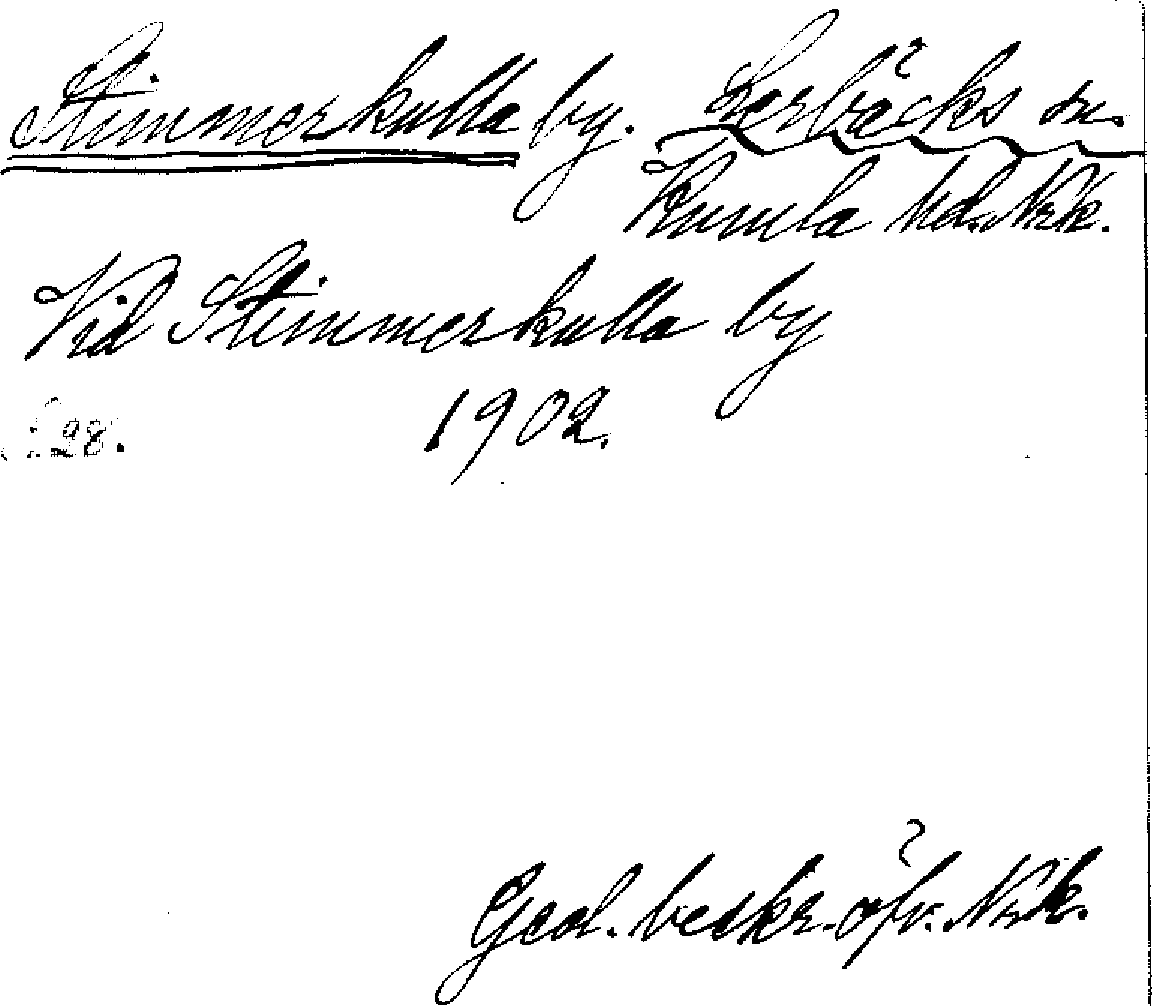 Stimmerkulla by. Lerbäcks sn.
Kumla hd. Nrk.
Vid Stimmerkulla by
S. 28. 1902.
Geol. beskr. öfv. Nrk.